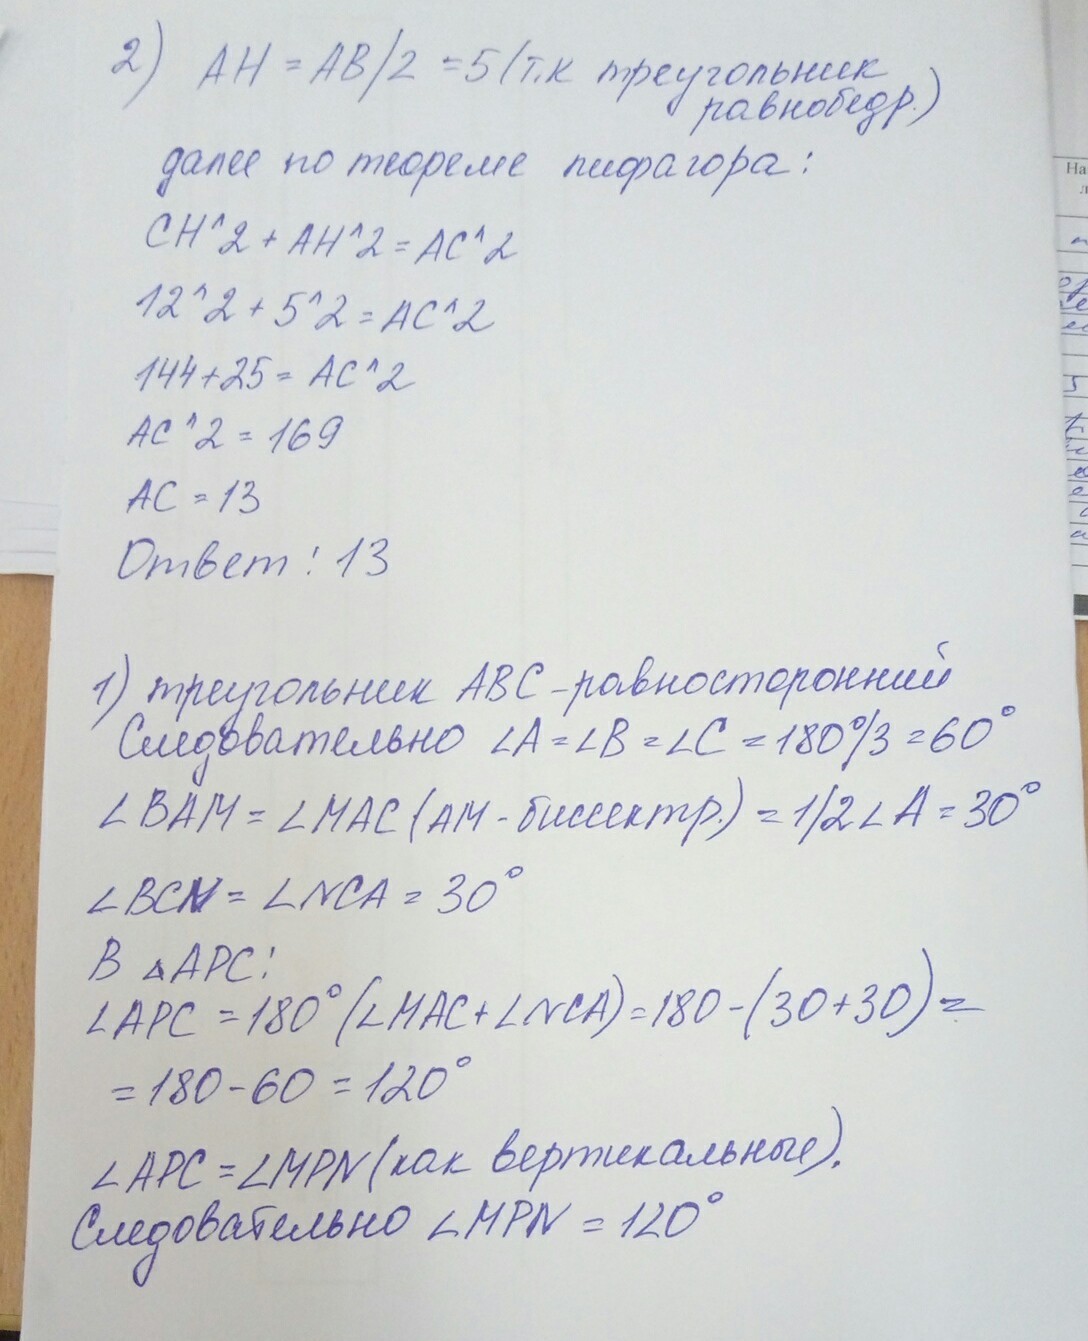 2) AH = AB/2 = 5 (т.к треугольник
равнобедр.)
далее по теореме пифагора:
CH^2 + AH^2 = AC^2
12^2 + 5^2 = AC^2
144+25 = AC^2
AC^2 = 169
AC = 13
Ответ: 13
1) треугольник ABC - равносторонний
Следовательно ∠A = ∠B = ∠C = 180°/3 = 60°
∠BAM = ∠MAC (AM - биссектр.) = 1/2 ∠A = 30°
∠BCN = ∠NCA = 30°
В △APC:
∠APC = 180° (∠MAC + ∠NCA) = 180 - (30 + 30) =
= 180 - 60 = 120°
∠APC = ∠MPN (как вертикальные).
Следовательно ∠MPN = 120°
На